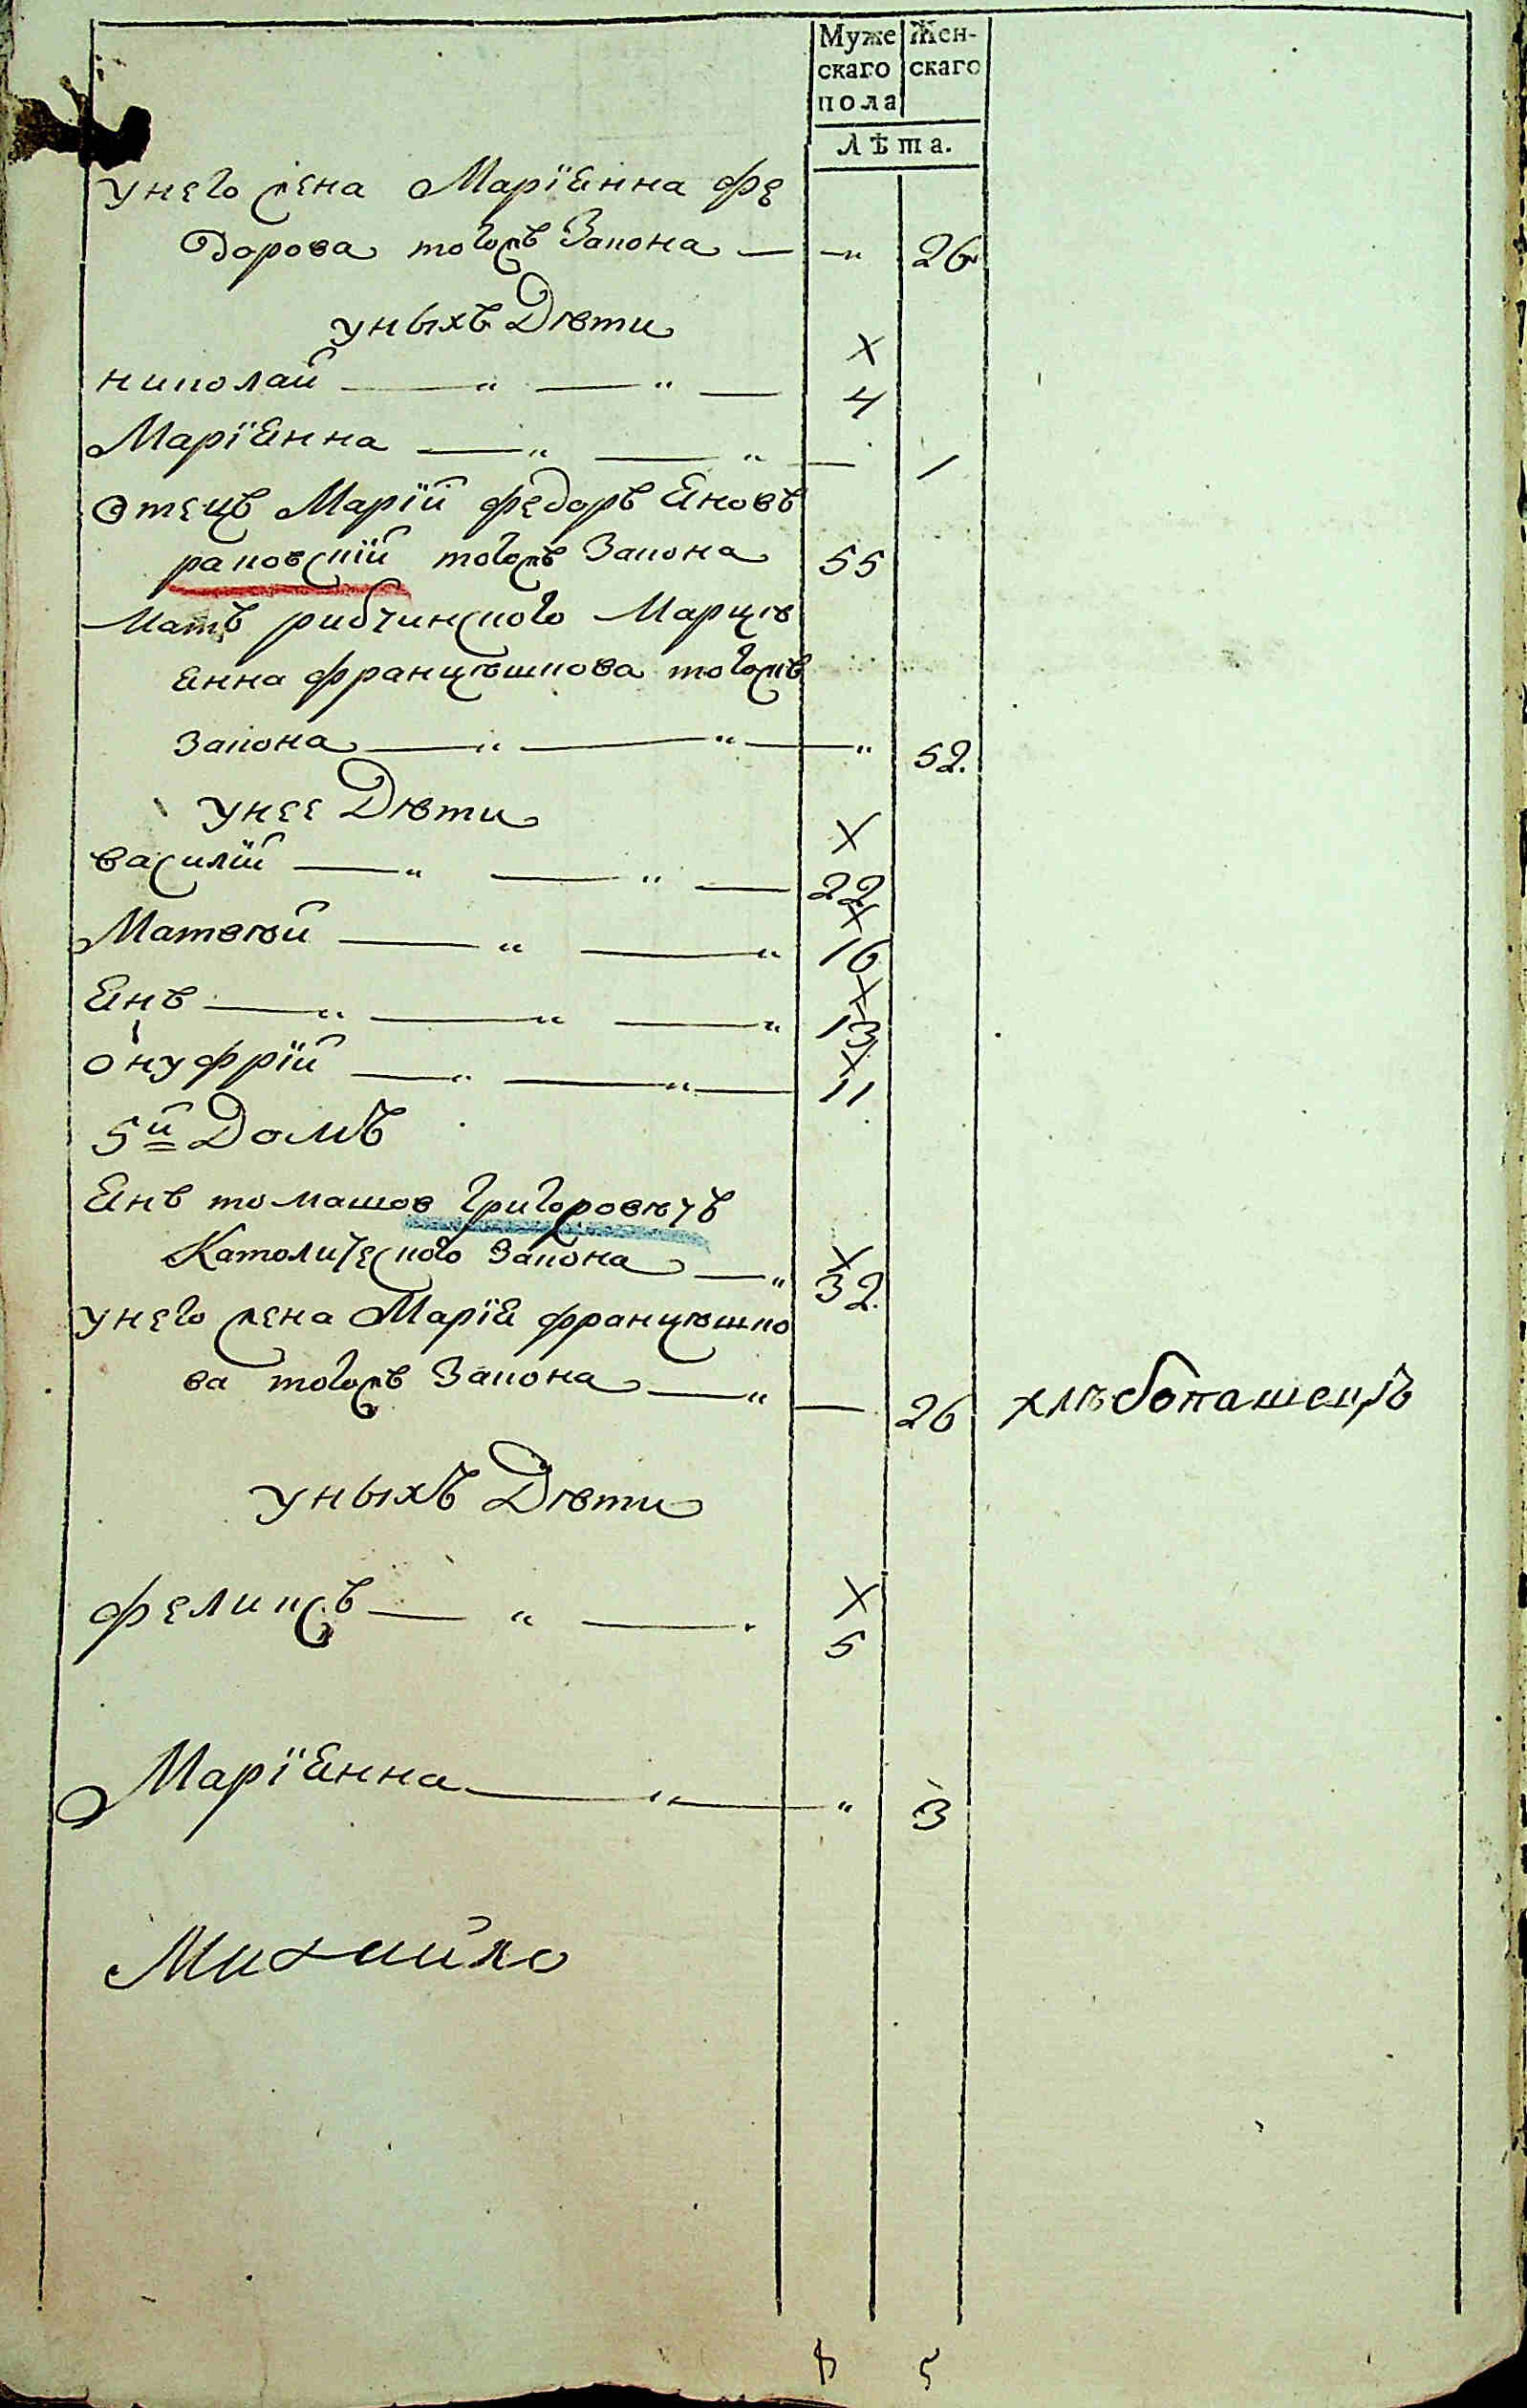 Муже Жен-
скаго скаго
пола
Лѣта.
унего жена Марїянна фе
дорова тогожъ Закона — —„ 26
уныхъ Дѣти
х
николай — „ — „ — 4
Марїянна — „ — „ — 1
Отецъ Марїй федоръ Яновъ
раковскїй тогожъ Закона 55
Матъ рибчинского Марцѣ
янна францѣшкова тогожъ
Закона — „ — „ — „ 52.
унее Дѣти
х
василїй — „ — „ — 22
х
Матвѣй — „ — „ 16
х
Янъ — „ — „ — „ 13
х
онуфрїй — „ — „ — 11
5й Домъ
Янъ томашов григоровѣчъ
х
Католического Закона — „ 32.
унего жена Марїя францѣшко
ва тогожъ Закона — „ — 26 хлѣбопашецъ
уныхъ Дѣти
х
феликсъ — „ — . 5
Марїянна — „ — „ 3
Михайло